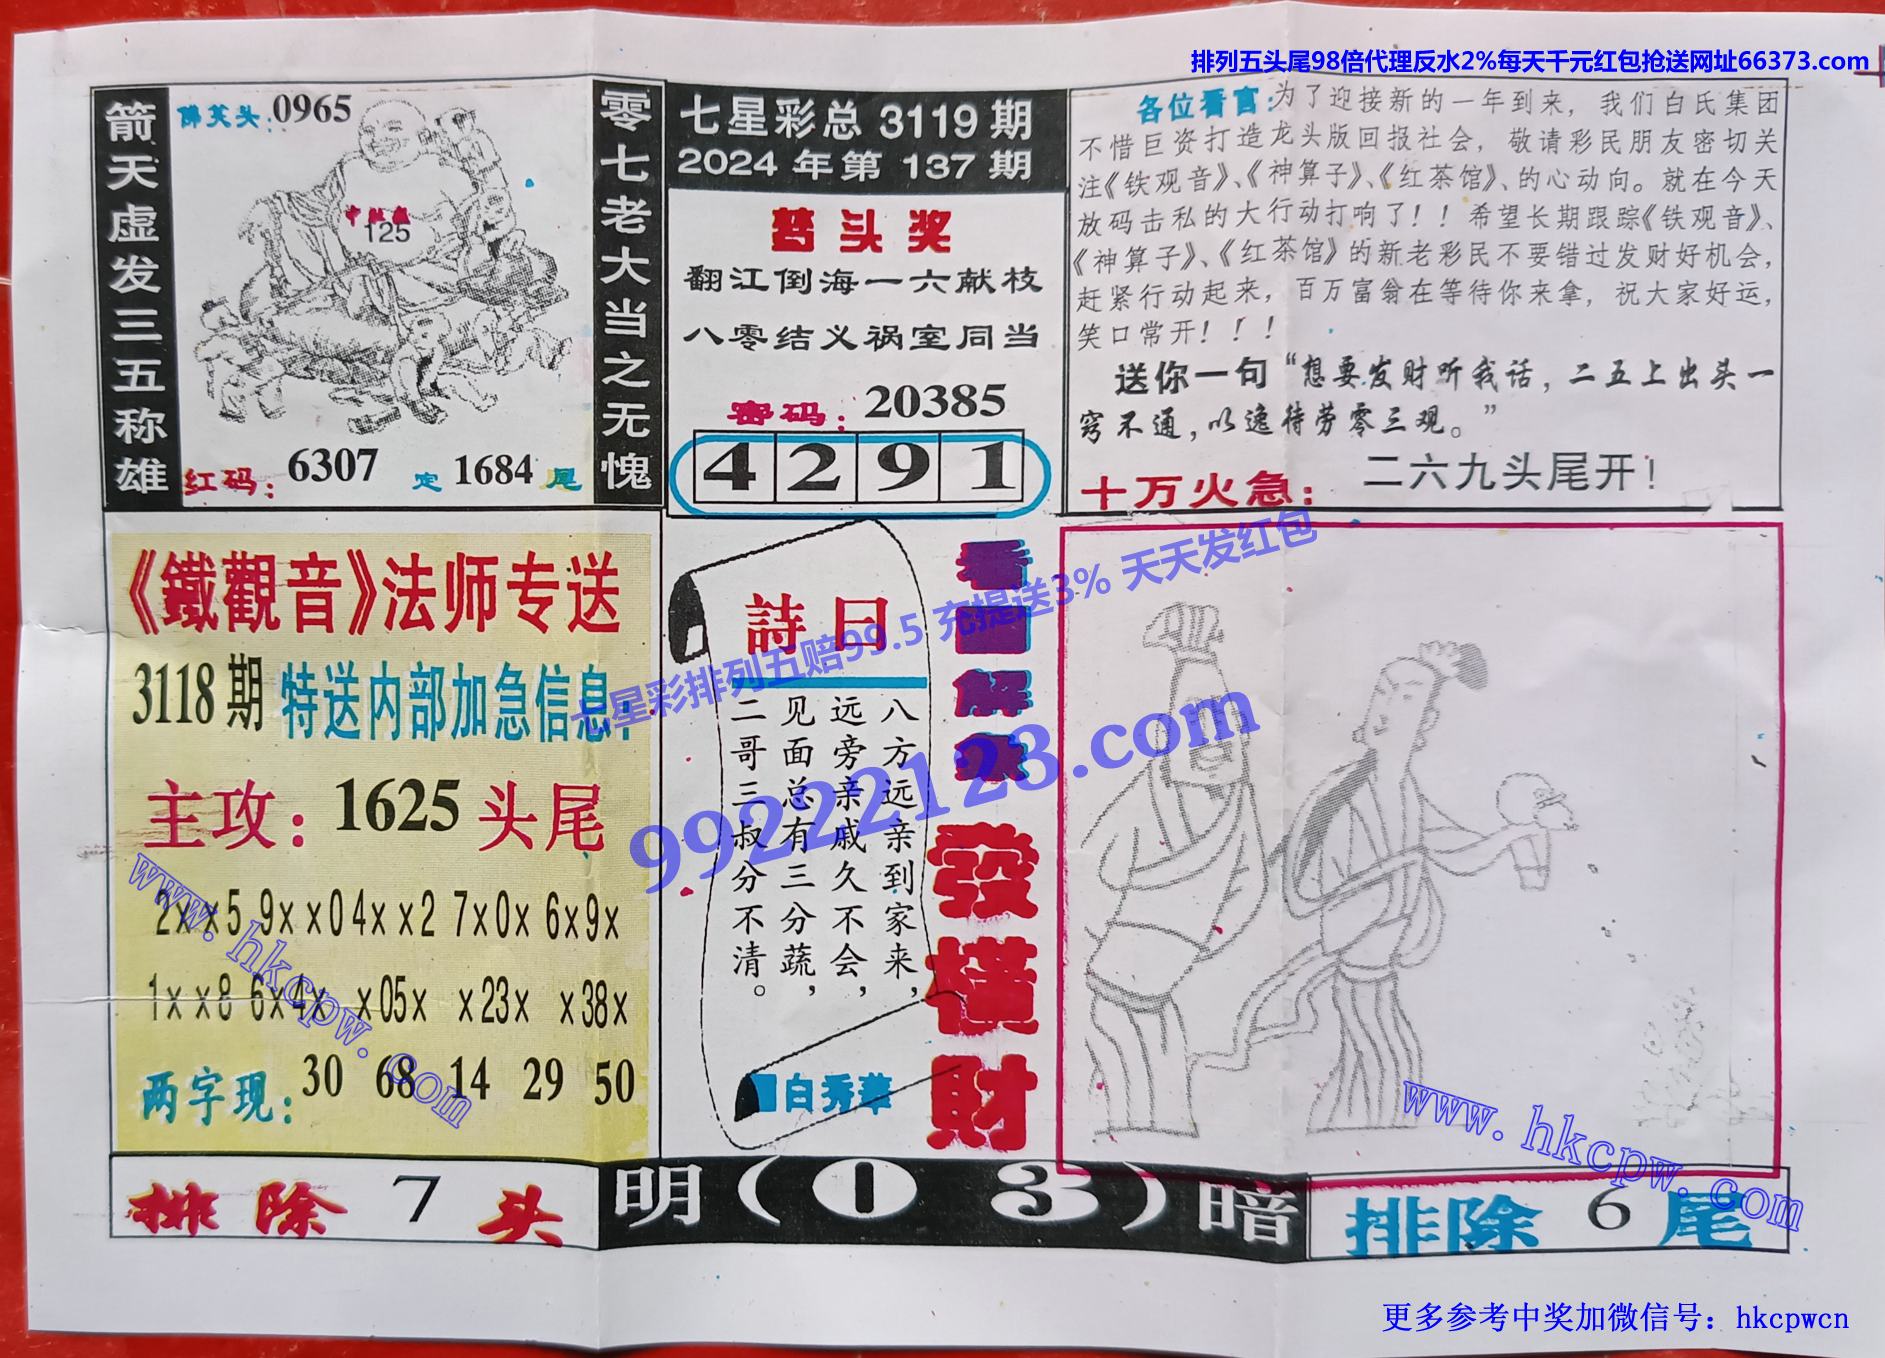 排列五头尾98倍代理反水2%每天千元红包抢送网址66373.com
箭天虚发三五称雄
佛笑头:0965
中肚藏
125
红码:6307 定1684尾
零七老大当之无愧
七星彩总3119期
2024年第137期
头奖
翻江倒海一六献枝
八零结义祸室同当
密码:20385
4291
各位看官:为了迎接新的一年到来，我们白氏集团
不惜巨资打造龙头版回报社会，敬请彩民朋友密切关
注《铁观音》、《神算子》、《红茶馆》、的心动向。就在今天
放码击私的大行动打响了！！希望长期跟踪《铁观音》、
《神算子》、《红茶馆》的新老彩民不要错过发财好机会，
赶紧行动起来，百万富翁在等待你来拿，祝大家好运，
笑口常开！！！
送你一句“想要发财听我话，二五上出头一
窍不通，以逸待劳零三观。”
十万火急:二六九头尾开！
《鐵觀音》法师专送
3118期 特送内部加急信息:
主攻:1625头尾
2××5 9××0 4××2 7×0× 6×9×
1××8 6×4× ×05× ×23× ×38×
两字现:30 68 14 29 50
詩曰
八方远亲到家来，
远旁亲戚久不会，
见面总有三分蔬，
二哥三叔分不清。
白秀華
看圖解象
發橫財
七星彩排列五赔99.5 充提送3% 天天发红包
99222123.com
www.hkcpw.com
www.hkcpw.com
排除7头
明(03)暗
排除6尾
更多参考中奖加微信号：hkcpwcn